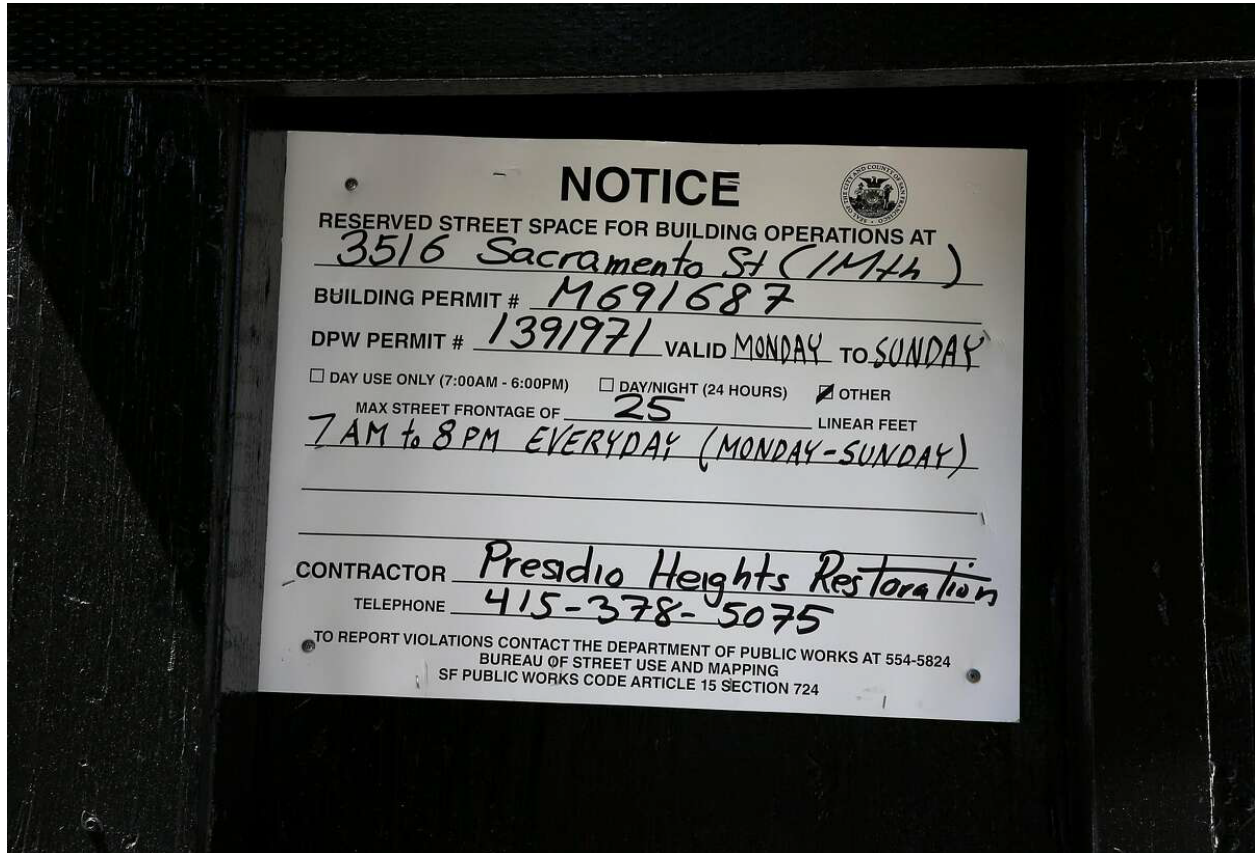 NOTICE
RESERVED STREET SPACE FOR BUILDING OPERATIONS AT
3516 Sacramento St (1Mth)
BUILDING PERMIT # M691687
DPW PERMIT # 1391971 VALID MONDAY TO SUNDAY
DAY USE ONLY (7:00AM - 6:00PM) DAY/NIGHT (24 HOURS) OTHER
MAX STREET FRONTAGE OF 25 LINEAR FEET
7 AM to 8 PM EVERYDAY (MONDAY-SUNDAY)
CONTRACTOR Presidio Heights Restoration
TELEPHONE 415-378-5075
TO REPORT VIOLATIONS CONTACT THE DEPARTMENT OF PUBLIC WORKS AT 554-5824
BUREAU OF STREET USE AND MAPPING
SF PUBLIC WORKS CODE ARTICLE 15 SECTION 724